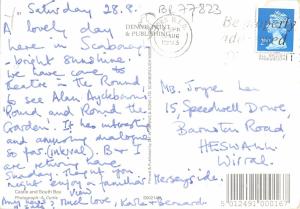 Saturday 28.8.
BP 77823
A lovely day
here in Scarborough
- bright sunshine.
We have come to
Theatre in the Round
to see Alan Ayckbourn's
Round and Round the
Garden. It has interesting
and amusing dialogue
so far (interval). B & I
are returning home
Sunday. Thought you
might enjoy a familiar
view
Much love, Kate & Bernard
DENNIS PRINT
& PUBLISHING
Castle and South Bay
Photograph: S. Curtis
Ms. Joyce Lee
15, Speedwell Drive,
Barnston Road
HESWALL
Wirral
Merseyside
5 012491 000167